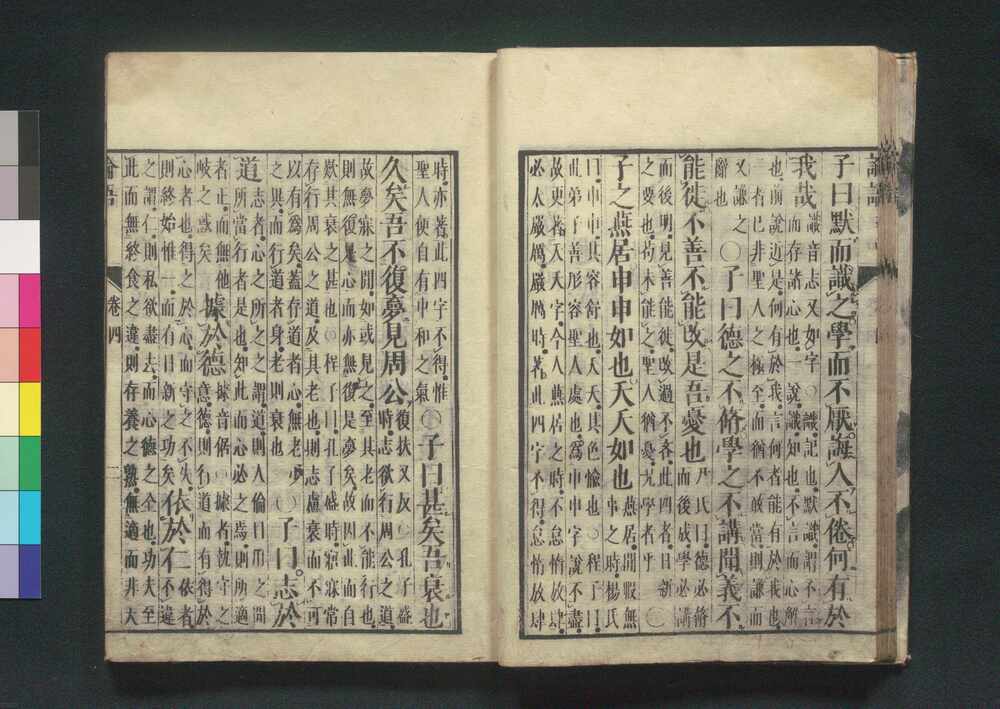 論語
子曰默而識之學而不厭誨人不倦何有於
我哉
識音志又如字○識記也默識謂不言
而存諸心也一說識知也不言而心解
也前說近是何有於我言何者能有於我也
三者已非聖人之極至而猶不敢當則謙而
又謙之
辭也
○子曰德之不脩學之不講聞義不
能徙不善不能改是吾憂也
尹氏曰德必脩
而後成學必講
而後明見善能徙改過不吝此四者日新
之要也苟未能之聖人猶憂況學者乎
○
子之燕居申申如也夭夭如也
燕居閒暇無
事之時楊氏
曰申申其容舒也夭夭其色愉也○程子曰
此弟子善形容聖人處也爲申申字說不盡
故更著夭夭字今人燕居之時不怠惰放肆
必太嚴厲嚴厲時著此四字不得怠惰放肆
時亦著此四字不得惟
聖人便自有中和之氣
○子曰甚矣吾衰也
久矣吾不復夢見周公
復扶又反○孔子盛
時志欲行周公之道
故夢寐之間如或見之至其老而不能行也
則無復是心而亦無復是夢矣故因此而自
歎其衰之甚也○程子曰孔子盛時寤寐常
存行周公之道及其老也則志慮衰而不可
以有爲矣蓋存道者心無老少
之異而行道者身老則衰也
○子曰志於
道
志者心之所之之謂道則人倫日用之間
所當行者是也知此而心必之焉則所適
者正而無他
岐之惑矣
據於德
據音倨○據者執守之
意德則行道而有得於
心者也得之於心而守之不失
則終始惟一而有日新之功矣
依於仁
依者
不違
之謂仁則私欲盡去而心德之全也功夫至
此而無終食之違則存養之熟無適而非天
論語
卷四